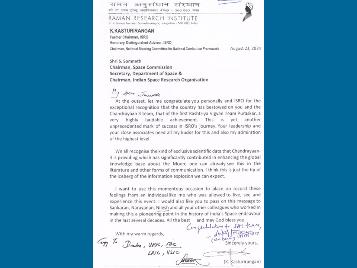 रामन अनुसंधान संस्थान
RAMAN RESEARCH INSTITUTE
K.KASTURIRANGAN
Former Chairman, ISRO
Honorary Distinguished Advisor, ISRO
Chairman, National Steering Committee for National Curriculum Framework
August 23, 2023
Shri S. Somnath
Chairman, Space Commission
Secretary, Department of Space &
Chairman, Indian Space Research Organisation
My dear Somnath
At the outset, let me congratulate you personally and ISRO for the
exceptional recognition that the country has bestowed on you and the
Chandrayaan 3 team, that of the first Rashtriya Vigyan Puraskar, a
very highly laudable achievement. This is yet another
unprecedented mark of success in ISRO's journey. Your leadership and
your close associates need all my kudos for this and also my admiration
of the highest level.
We all recognise the kind of exclusive scientific data that Chandrayaan-
3 is providing which has significantly contributed in enhancing the global
knowledge base about the Moon, one can already see this in the
literature and other forms of communication. I think this is just the tip of
the iceberg of the information explosion we can expect.
I want to use this momentous occasion to place on record these
feelings from an individual like me who was allowed to live, see and
experience this event. I would also like you to pass on this message to
Sankaran, Narayanan, Nilesh and all your other colleagues who worked in
making this a pioneering point in the history of India's Space endeavour
in the last several decades. All the best and may God bless you
With my warm regards,
Sincerely yours,
K. Kasturirangan